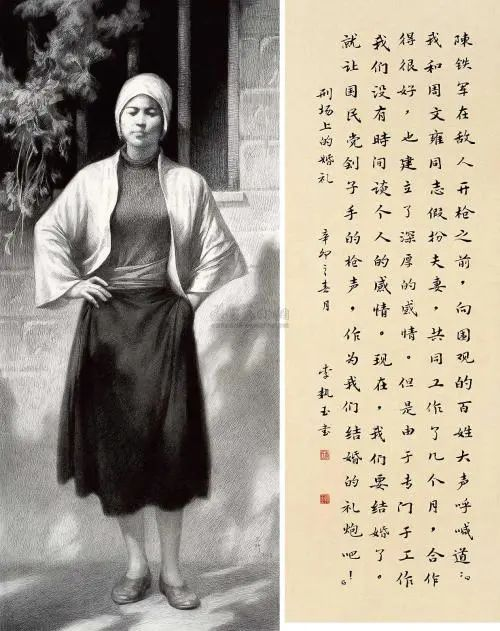 陳铁军在敌人开枪之前，向围观的百姓大声呼喊道：
我和周文雍同志假扮夫妻，共同工作了几个月，合作
得很好，也建立了深厚的感情。但是由于专门于工作
我们没有時间谈个人的感情。现在，我们要结婚了。
就让国民党刽子手的枪声，作为我们结婚的礼炮吧！
刑场上的婚礼 辛卯之春月 李執玉书